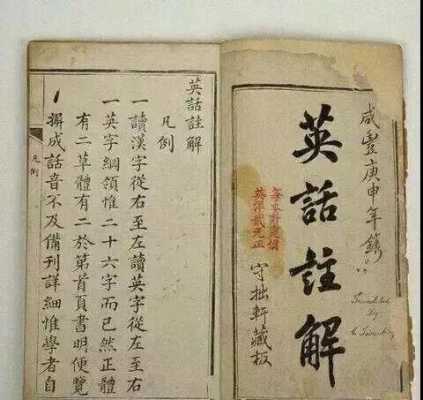 咸豐庚申年鐫
Translated
by
英話註解
守拙軒藏板
英洋貳元正
英話註解
凡例
一讀漢字從右至左讀英字從左至右
一英字綱領惟二十六字而已然正體
有二草體有二於第首頁書明便覽
一摒成話音不及備刊詳細惟學者自
凡例